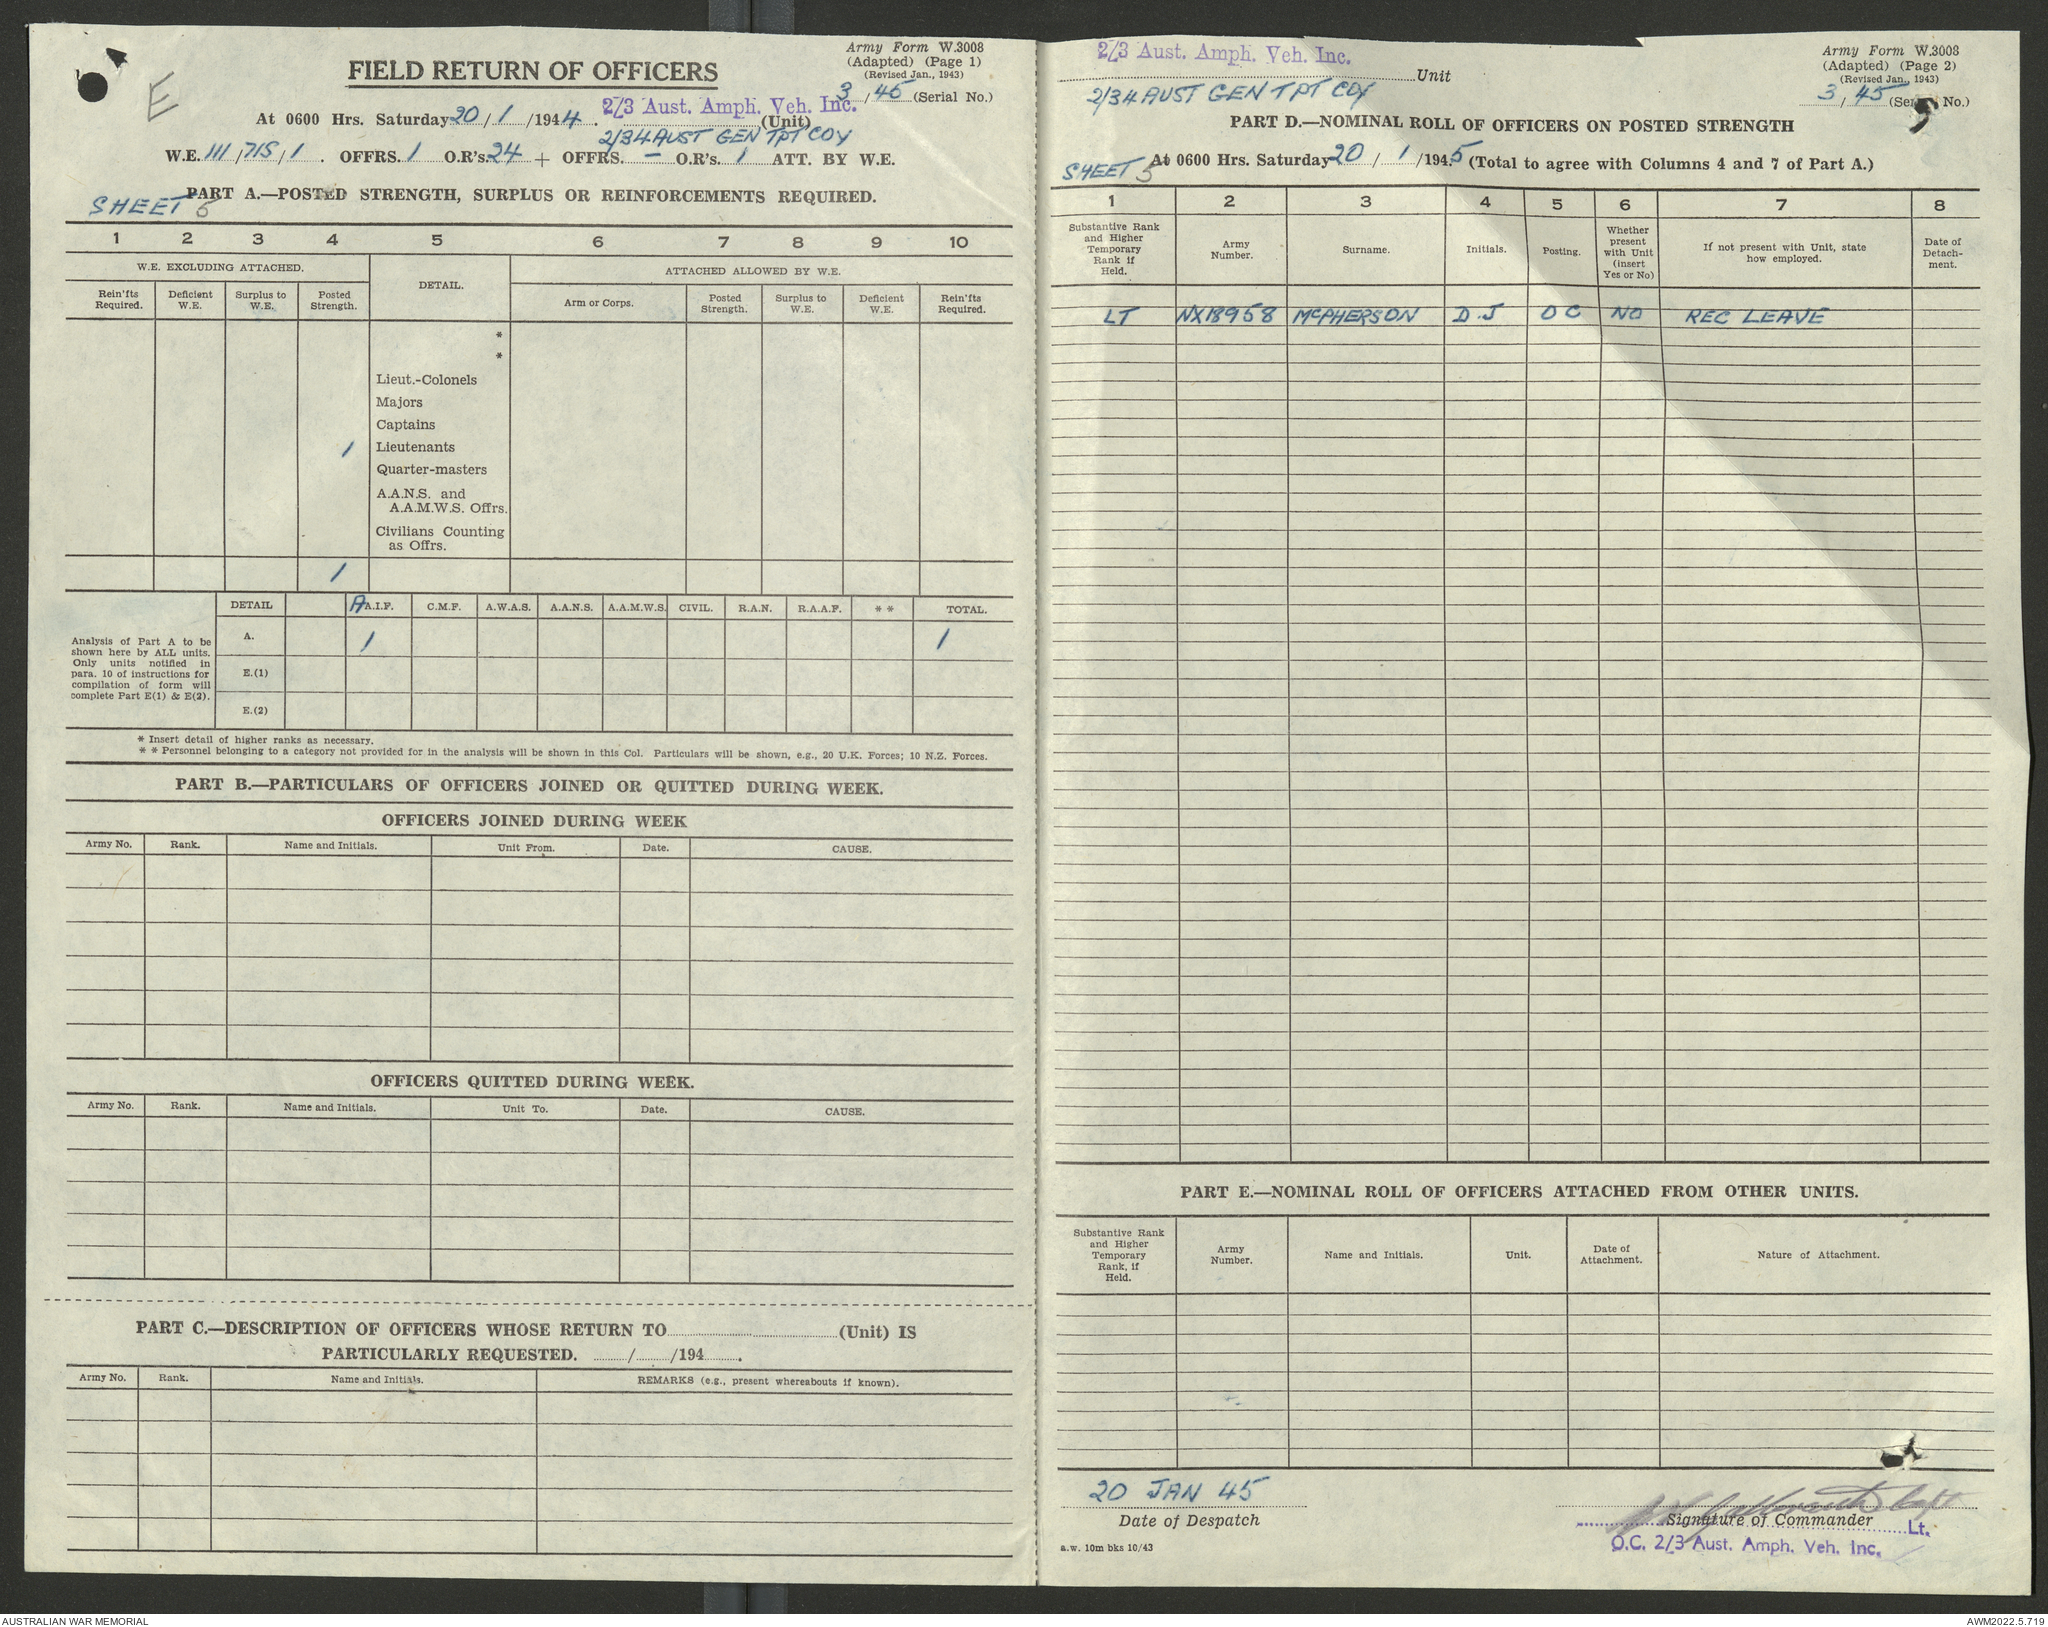 E
FIELD RETURN OF OFFICERS
Army Form W.3008
(Adapted) (Page 1)
(Revised Jan., 1943)
3/45 (Serial No.)
At 0600 Hrs. Saturday 20/1/1944. 2/3 Aust. Amph. Veh. Inc. (Unit)
2/34 AUST GEN TPT COY
W.E. III/715/1. OFFRS. 1 O.R's. 24 + OFFRS. — O.R's. 1 ATT. BY W.E.
SHEET 5
PART A.—POSTED STRENGTH, SURPLUS OR REINFORCEMENTS REQUIRED.
1 2 3 4 5 6 7 8 9 10
W.E. EXCLUDING ATTACHED. DETAIL. ATTACHED ALLOWED BY W.E.
Rein'fts Required. Deficient W.E. Surplus to W.E. Posted Strength. Arm or Corps. Posted Strength. Surplus to W.E. Deficient W.E. Rein'fts Required.
*
*
Lieut.-Colonels
Majors
Captains
1 Lieutenants
Quarter-masters
A.A.N.S. and
A.A.M.W.S. Offrs.
Civilians Counting
as Offrs.
1
DETAIL A A.I.F. C.M.F. A.W.A.S. A.A.N.S. A.A.M.W.S. CIVIL. R.A.N. R.A.A.F. * * TOTAL.
Analysis of Part A to be
shown here by ALL units.
Only units notified in
para. 10 of instructions for
compilation of form will
complete Part E(1) & E(2).
A. 1 1
E.(1)
E.(2)
* Insert detail of higher ranks as necessary.
* * Personnel belonging to a category not provided for in the analysis will be shown in this Col. Particulars will be shown, e.g., 20 U.K. Forces; 10 N.Z. Forces.
PART B.—PARTICULARS OF OFFICERS JOINED OR QUITTED DURING WEEK.
OFFICERS JOINED DURING WEEK
Army No. Rank. Name and Initials. Unit From. Date. CAUSE.
OFFICERS QUITTED DURING WEEK.
Army No. Rank. Name and Initials. Unit To. Date. CAUSE.
PART C.—DESCRIPTION OF OFFICERS WHOSE RETURN TO (Unit) IS
PARTICULARLY REQUESTED. / /194 .
Army No. Rank. Name and Initials. REMARKS (e.g., present whereabouts if known).
2/3 Aust. Amph. Veh. Inc.
Unit
2/34 AUST GEN TPT COY
Army Form W.3008
(Adapted) (Page 2)
(Revised Jan., 1943)
3/45 (Ser No.)
PART D.—NOMINAL ROLL OF OFFICERS ON POSTED STRENGTH
SHEET 5
At 0600 Hrs. Saturday 20/1/1945 (Total to agree with Columns 4 and 7 of Part A.)
1 2 3 4 5 6 7 8
Substantive Rank and Higher Temporary Rank if Held. Army Number. Surname. Initials. Posting. Whether present with Unit (insert Yes or No) If not present with Unit, state how employed. Date of Detach-ment.
LT NX18958 McPHERSON D.J OC NO REC LEAVE
PART E.—NOMINAL ROLL OF OFFICERS ATTACHED FROM OTHER UNITS.
Substantive Rank and Higher Temporary Rank, if Held. Army Number. Name and Initials. Unit. Date of Attachment. Nature of Attachment.
20 JAN 45
Date of Despatch
Signature of Commander
Lt.
O.C. 2/3 Aust. Amph. Veh. Inc.
a.w. 10m bks 10/43
AUSTRALIAN WAR MEMORIAL
AWM2022.5.719